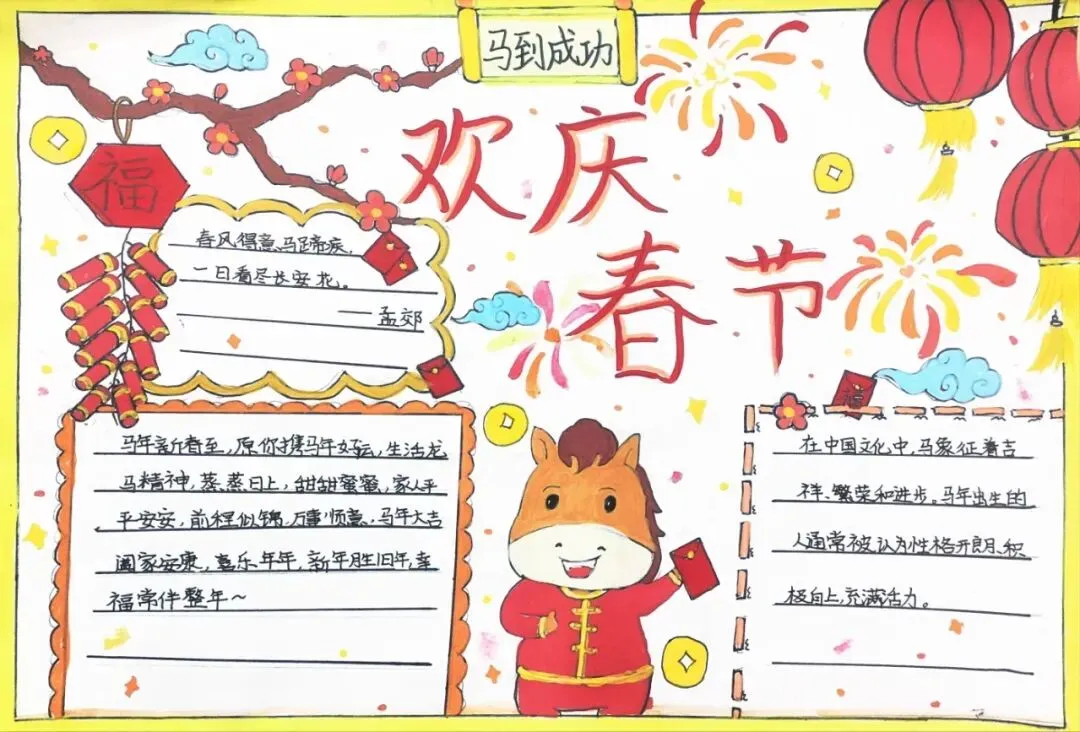 马到成功
欢庆
春节
福
春风得意马蹄疾,
一日看尽长安花。
——孟郊
福
马年新春至,愿你携马年好运,生活龙
马精神,蒸蒸日上,甜甜蜜蜜,家人平
平安安,前程似锦,万事顺意,马年大吉
阖家安康,喜乐年年,新年胜旧年,幸
福常伴整年~
在中国文化中,马象征着吉
祥、繁荣和进步。马年出生的
人通常被认为性格开朗、积
极向上,充满活力。